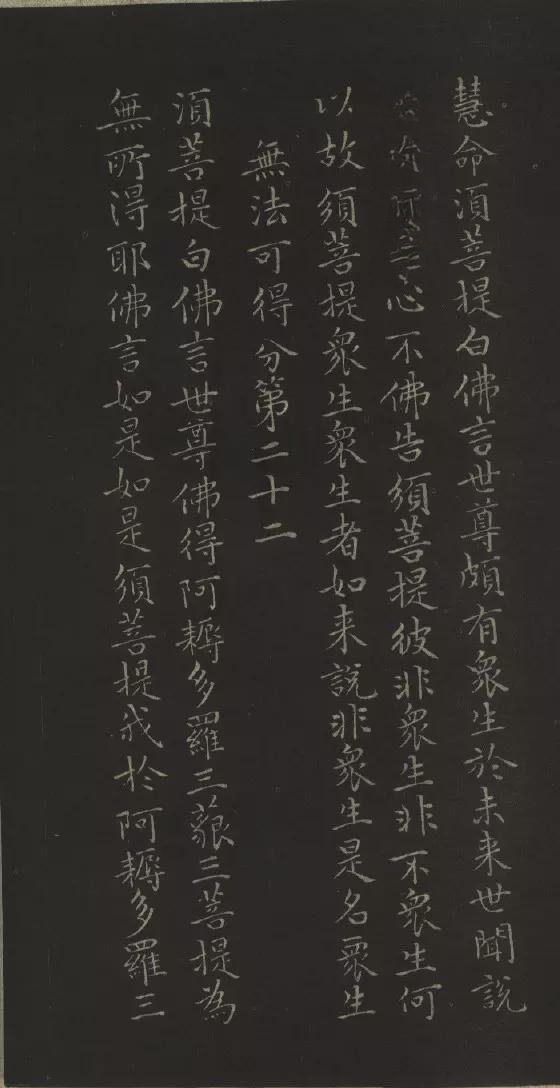 慧命須菩提白佛言世尊頗有衆生於未来世聞說
心不佛告須菩提彼非衆生非不衆生何
以故須菩提衆生衆生者如来說非衆生是名衆生
無法可得分第二十二
須菩提白佛言世尊佛得阿耨多羅三藐三菩提為
無所得耶佛言如是如是須菩提我於阿耨多羅三